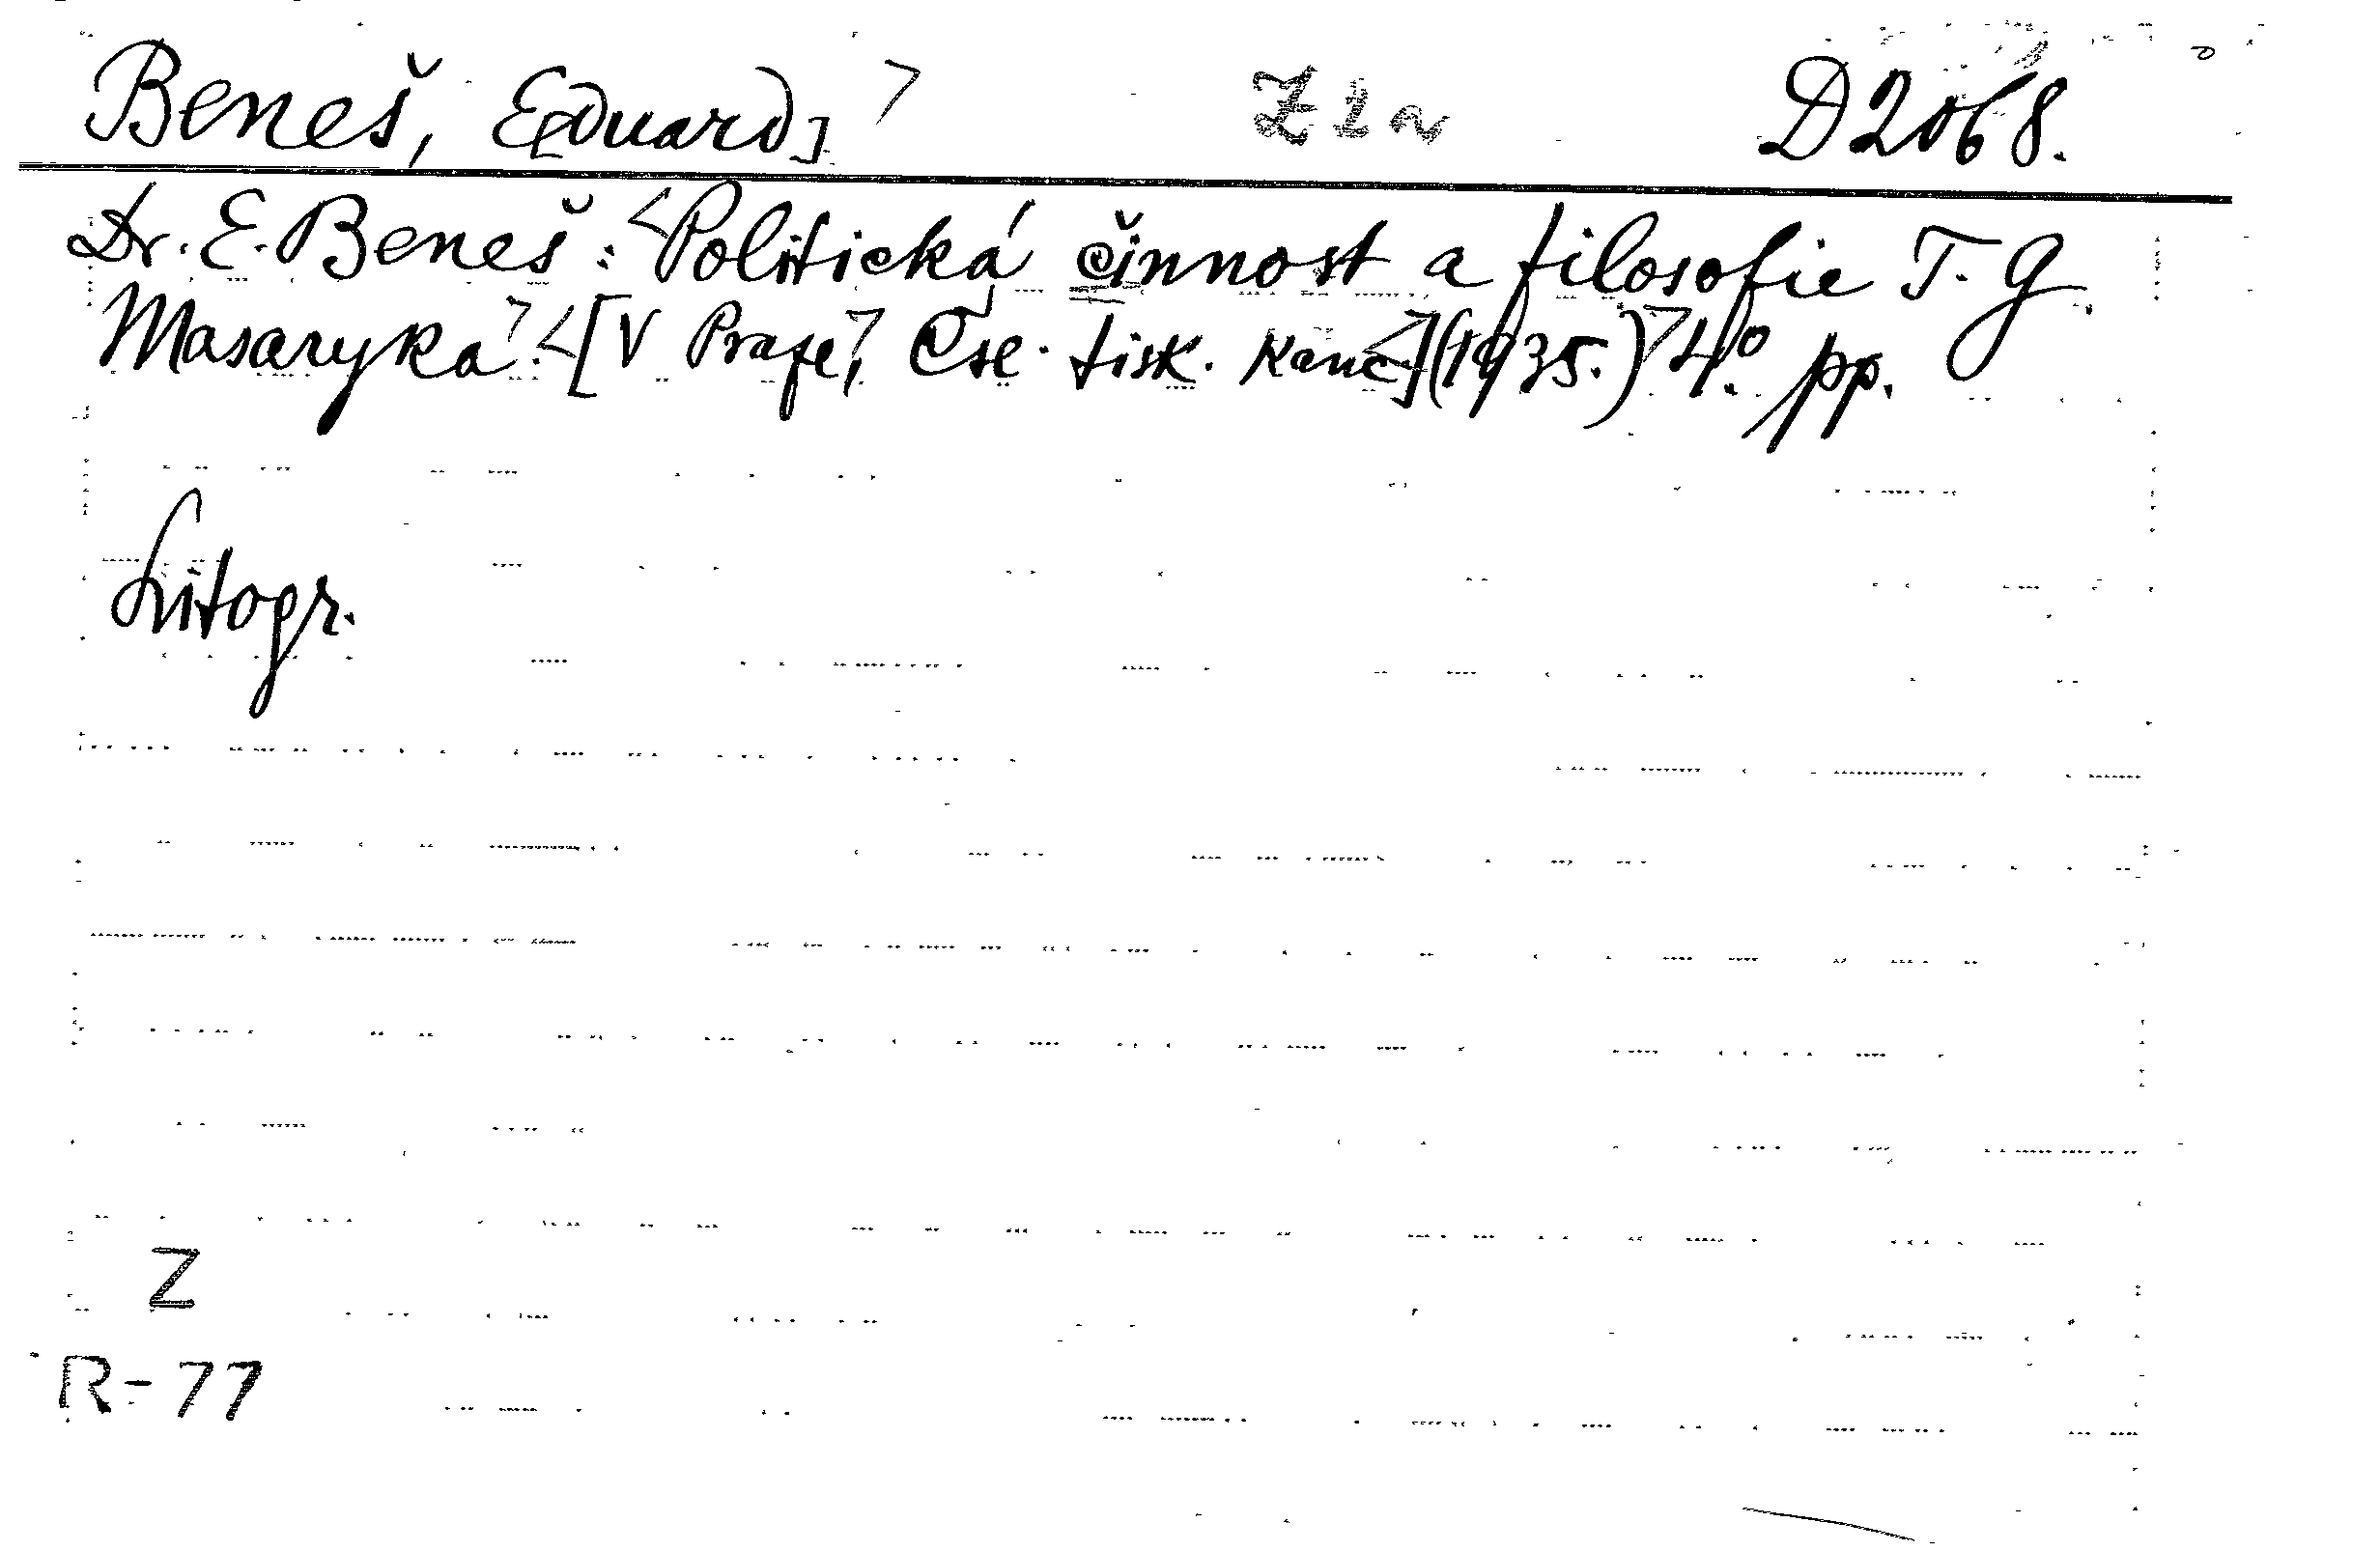 Beneš, E[duard] Z 2 a D 2068.
Dr. E. Beneš: Politická činnost a filosofie T. G.
Masaryka. [V Praze, Čsl. tisk. kanc.] (1935.) 4° pp.
Litogr.
Z
R-77